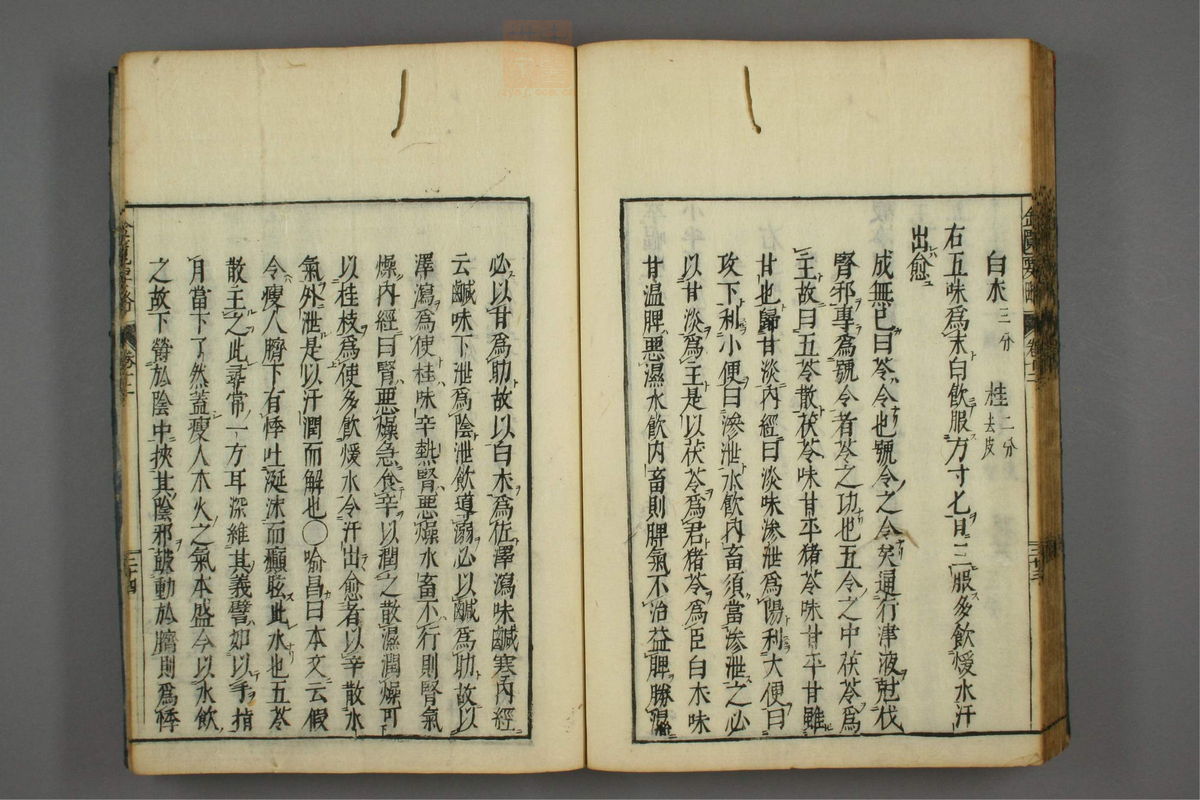 白朮三分　桂二分去皮
右五味爲末白飮服方寸匕日三服多飮煖水汗
出愈
成無已曰苓令也號令之令矣通行津液尅伐
腎邪專爲號令者苓之功也五令之中茯苓爲
主故曰五苓散茯苓味甘平猪苓味甘平甘雖
甘也歸甘淡内經曰淡味滲泄爲陽利大便曰
攻下利小便曰滲泄水飮内畜須當滲泄之必
以甘淡爲主是以茯苓爲君猪苓爲臣白朮味
甘温脾惡濕水飮内畜則脾氣不治益脾勝濕
必以甘爲助故以白朮爲佐澤瀉味鹹寒内經
云鹹味下泄爲陰泄飮導溺必以鹹爲助故以
澤瀉爲使桂味辛熱腎惡燥水畜不行則腎氣
燥内經曰腎惡燥急食辛以潤之散濕潤燥可
以桂枝爲使多飮煖水令汗出愈者以辛散水
氣外泄是以汗潤而解也〇喻昌曰本文云假
令瘦人臍下有悸吐涎沫而癲眩此水也五苓
散主之此尋常一方耳深維其義譬如以手指
月當下了然蓋瘦人木火之氣本盛今以水飮
之故下鬱於陰中挾其陰邪鼓動於臍則爲悸
金匱要略
卷十二
二十四